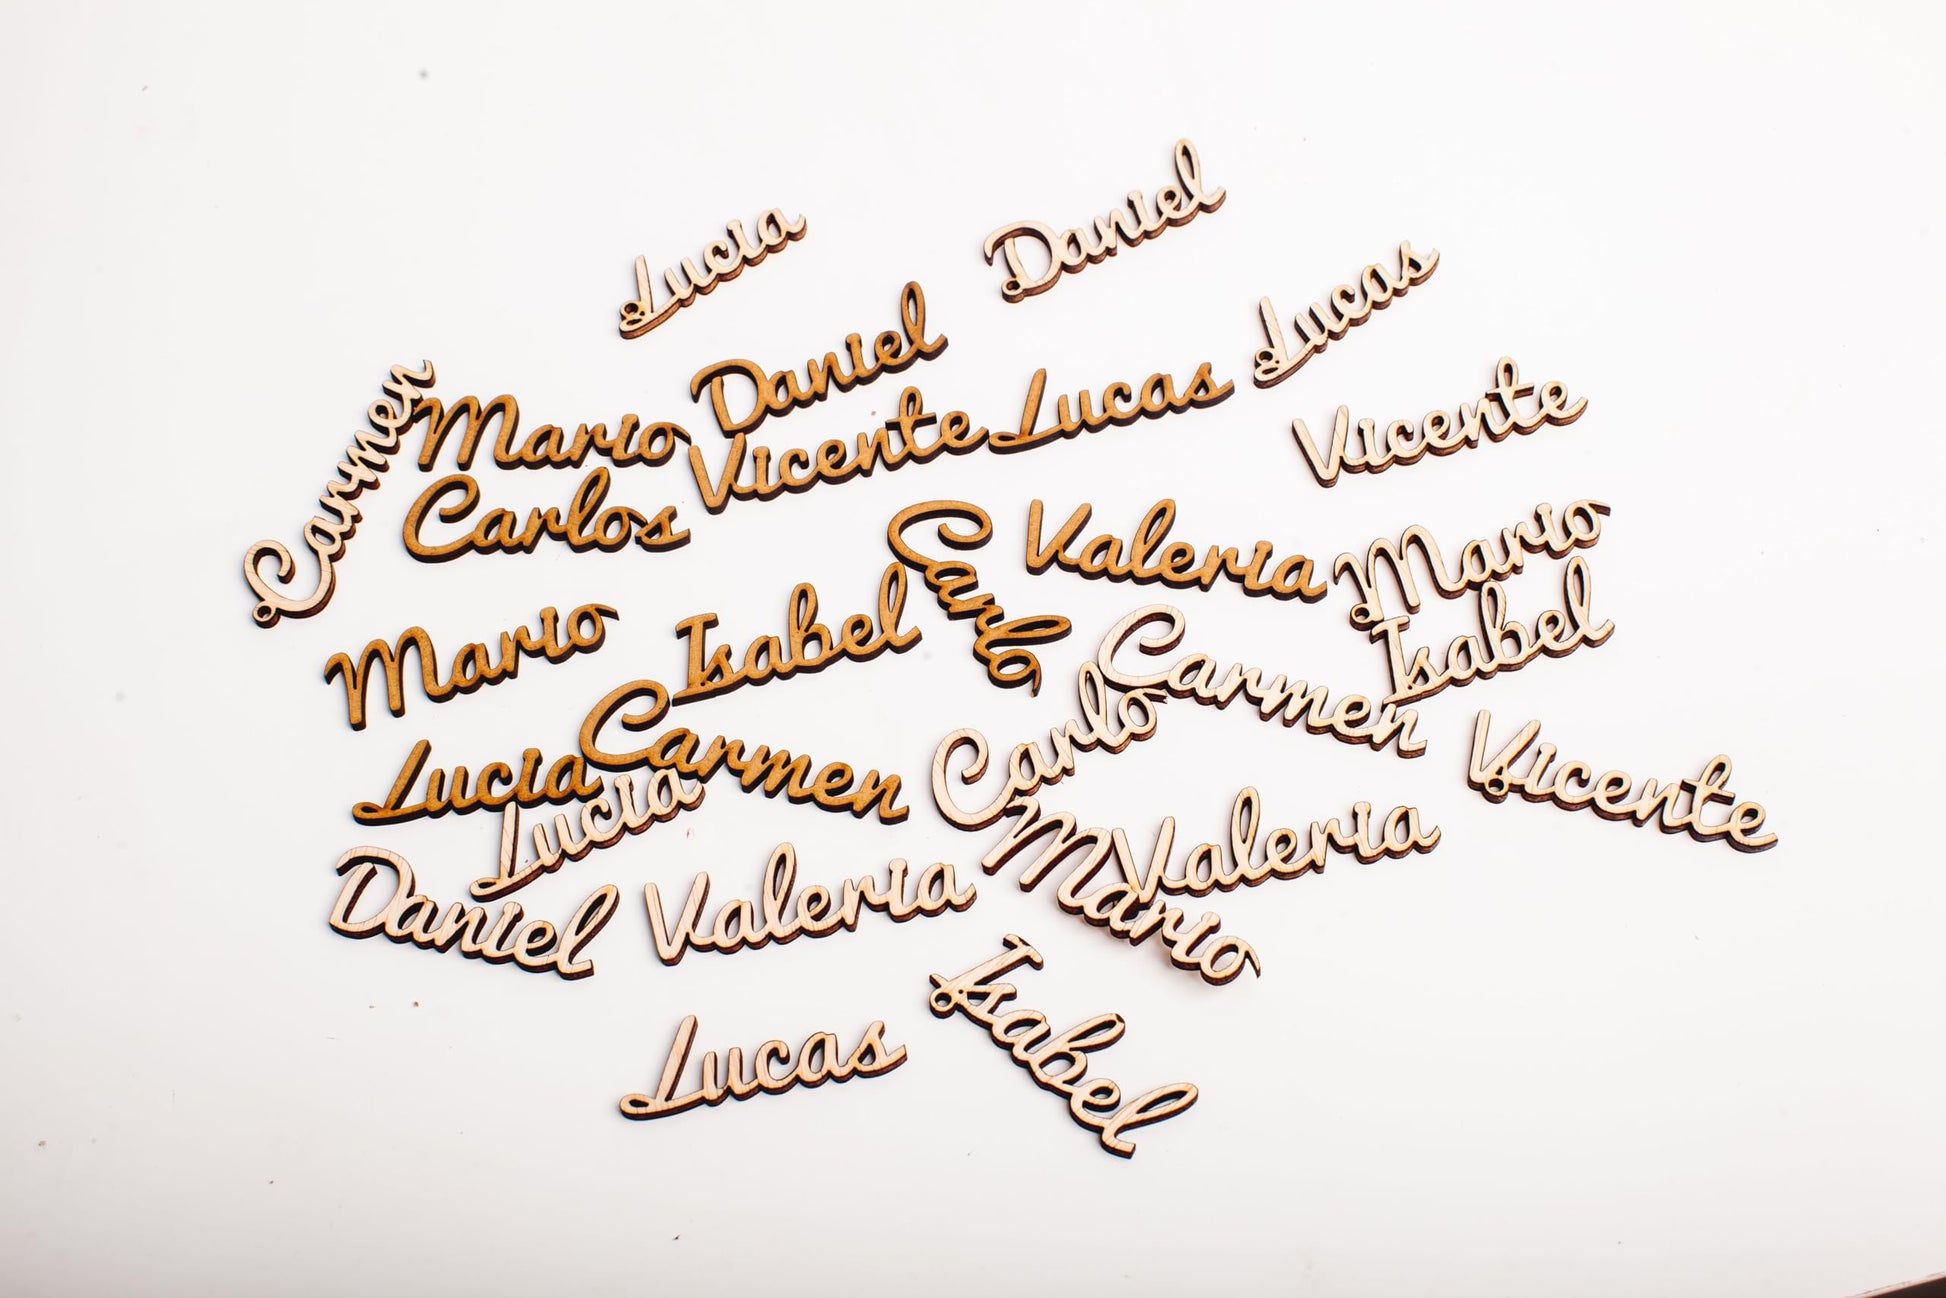 Daniel
Lucia
Lucas
Daniel
Carmen
Mario
Vicente
Lucas
Vicente
Carlos
Carlo
Valeria
Mario
Isabel
Mario
Isabel
Carmen
Carmen
Carlo
Vicente
Lucia
Lucia
Valeria
Daniel
Valeria
Mario
Isabel
Lucas